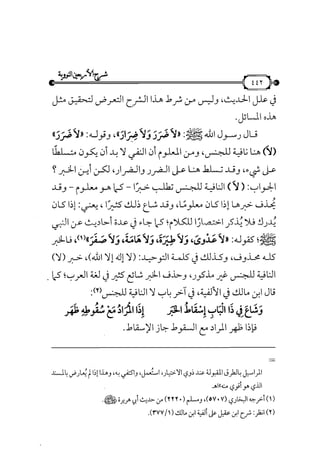 شرح الأربعين النووية
٤٤٢
في علل الحديث، وليس من شرط هذا الشرح التعرض لتحقيق مثل
هذه المسائل.
قال رسول الله ﷺ: «لاَ ضَرَرَ وَلاَ ضِرَارَ»، وقوله: «لاَ ضَرَرَ»
(لا) هنا نافية للجنس، ومن المعلوم أن النفي لا بد أن يكون متسلطًا
على شيء، وقد تسلط هنا على الضرر والضرار، لكن أين الخبر؟
الجواب: (لا) النافية للجنس تطلب خبرًا - كما هو معلوم - وقد
يُحذف خبرها إذا كان معلومًا، وقد شاع ذلك كثيرًا، يعني: إذا كان
يُدرك فلا يُذكر اختصارًا للكلام؛ كما جاء في عدة أحاديث عن النبي
ﷺ كقوله: «لاَ عَدْوَى، وَلاَ طِيَرَةَ، وَلاَ هَامَةَ، وَلاَ صَفَرَ»(١)، فالخبر
كله محذوف، وكذلك في كلمة التوحيد: (لا إله إلا الله)، خبر (لا)
النافية للجنس غير مذكور، وحذف الخبر شائع كثير في لغة العرب؛ كما
قال ابن مالك في الألفية، في آخر باب لا النافية للجنس(٢):
وَشَاعَ فِي ذَا الْبَابِ إِسْقَاطُ الْخَبَرْ إِذَا الْمُرَادُ مَعْ سُقُوطِهِ ظَهَرْ
فإذا ظهر المراد مع السقوط جاز الإسقاط.
المراسيل بالطرق المقبولة عند ذوي الاختيار، استُعمل، واكتفي به، وهذا إذا لم يُعارض بالمسند
الذي هو أقوى منه»اهـ
(١) أخرجه البخاري (٥٧٠٧)، ومسلم (٢٢٢٠) من حديث أبي هريرة ﵁.
(٢) انظر: شرح ابن عقيل على ألفية ابن مالك (١/ ٣٧٧).